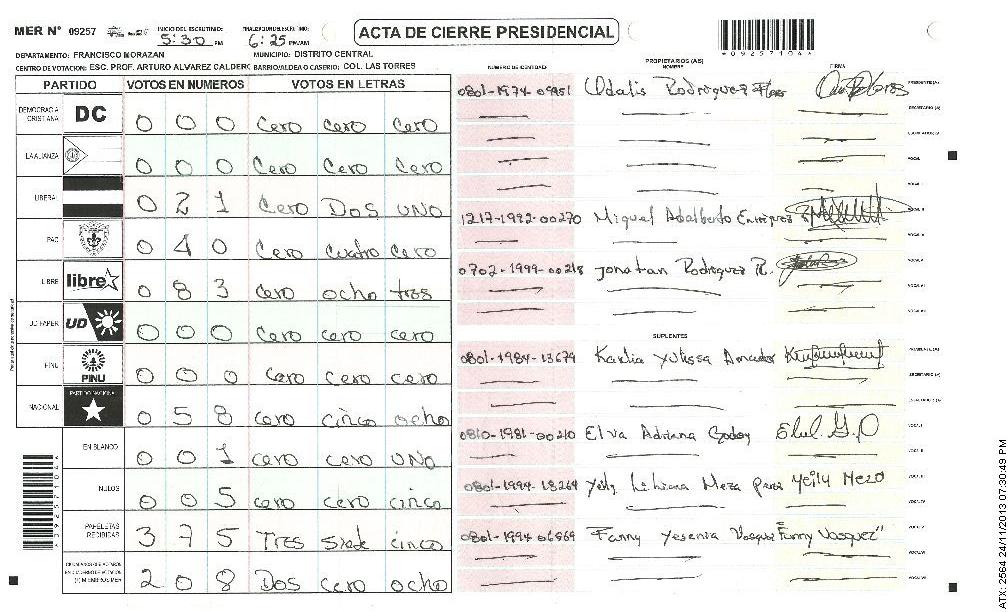 MER Nº 09257 INICIO DEL ESCRUTINIO: 5:30 PM 6:25 PM/AM
ACTA DE CIERRE PRESIDENCIAL
*09257104*
DEPARTAMENTO: FRANCISCO MORAZAN MUNICIPIO: DISTRITO CENTRAL
CENTRO DE VOTACION: ESC. PROF. ARTURO ALVAREZ CALDERO BARRIO/ALDEA O CASERIO: COL. LAS TORRES
PARTIDO VOTOS EN NUMEROS VOTOS EN LETRAS
DEMOCRACIA CRISTIANA DC 0 0 0 Cero Cero Cero
LA ALIANZA 0 0 0 Cero Cero Cero
LIBERAL 0 2 1 Cero Dos UNO
PAC 0 4 0 Cero Cuatro Cero
LIBRE libre 0 8 3 Cero ocho tres
UD FAPER UD 0 0 0 Cero cero cero
PINU PINU 0 0 0 Cero cero cero
NACIONAL PARTIDO NACIONAL 0 5 8 cero cinco ocho
EN BLANCO 0 0 1 cero cero UNO
NULOS 0 0 5 cero cero cinco
PAPELETAS RECIBIDAS 3 7 5 Tres siete cinco
2 0 8 Dos cero ocho
NUMERO DE IDENTIDAD PROPIETARIOS (AS) NOMBRE FIRMA
0801-1974-09951 Odalis Rodriguez Flores PRESIDENTE (A)
SECRETARIO (A)
1217-1992-00270 Miguel Adalberto Enriquez
0702-1999-00218 Jonatan Rodriguez R.
SUPLENTES
0801-1984-13679 Karlia Yulissa Amador
0810-1981-00210 Elva Adriana Godoy
0801-1994-18264 Yeily Liliana Meza Yeily Meza
0801-1994-06869 Fanny Yesenia Vasquez Fanny Vasquez
*09257104*
ATX: 2564 24/11/2013 07:30:49 PM